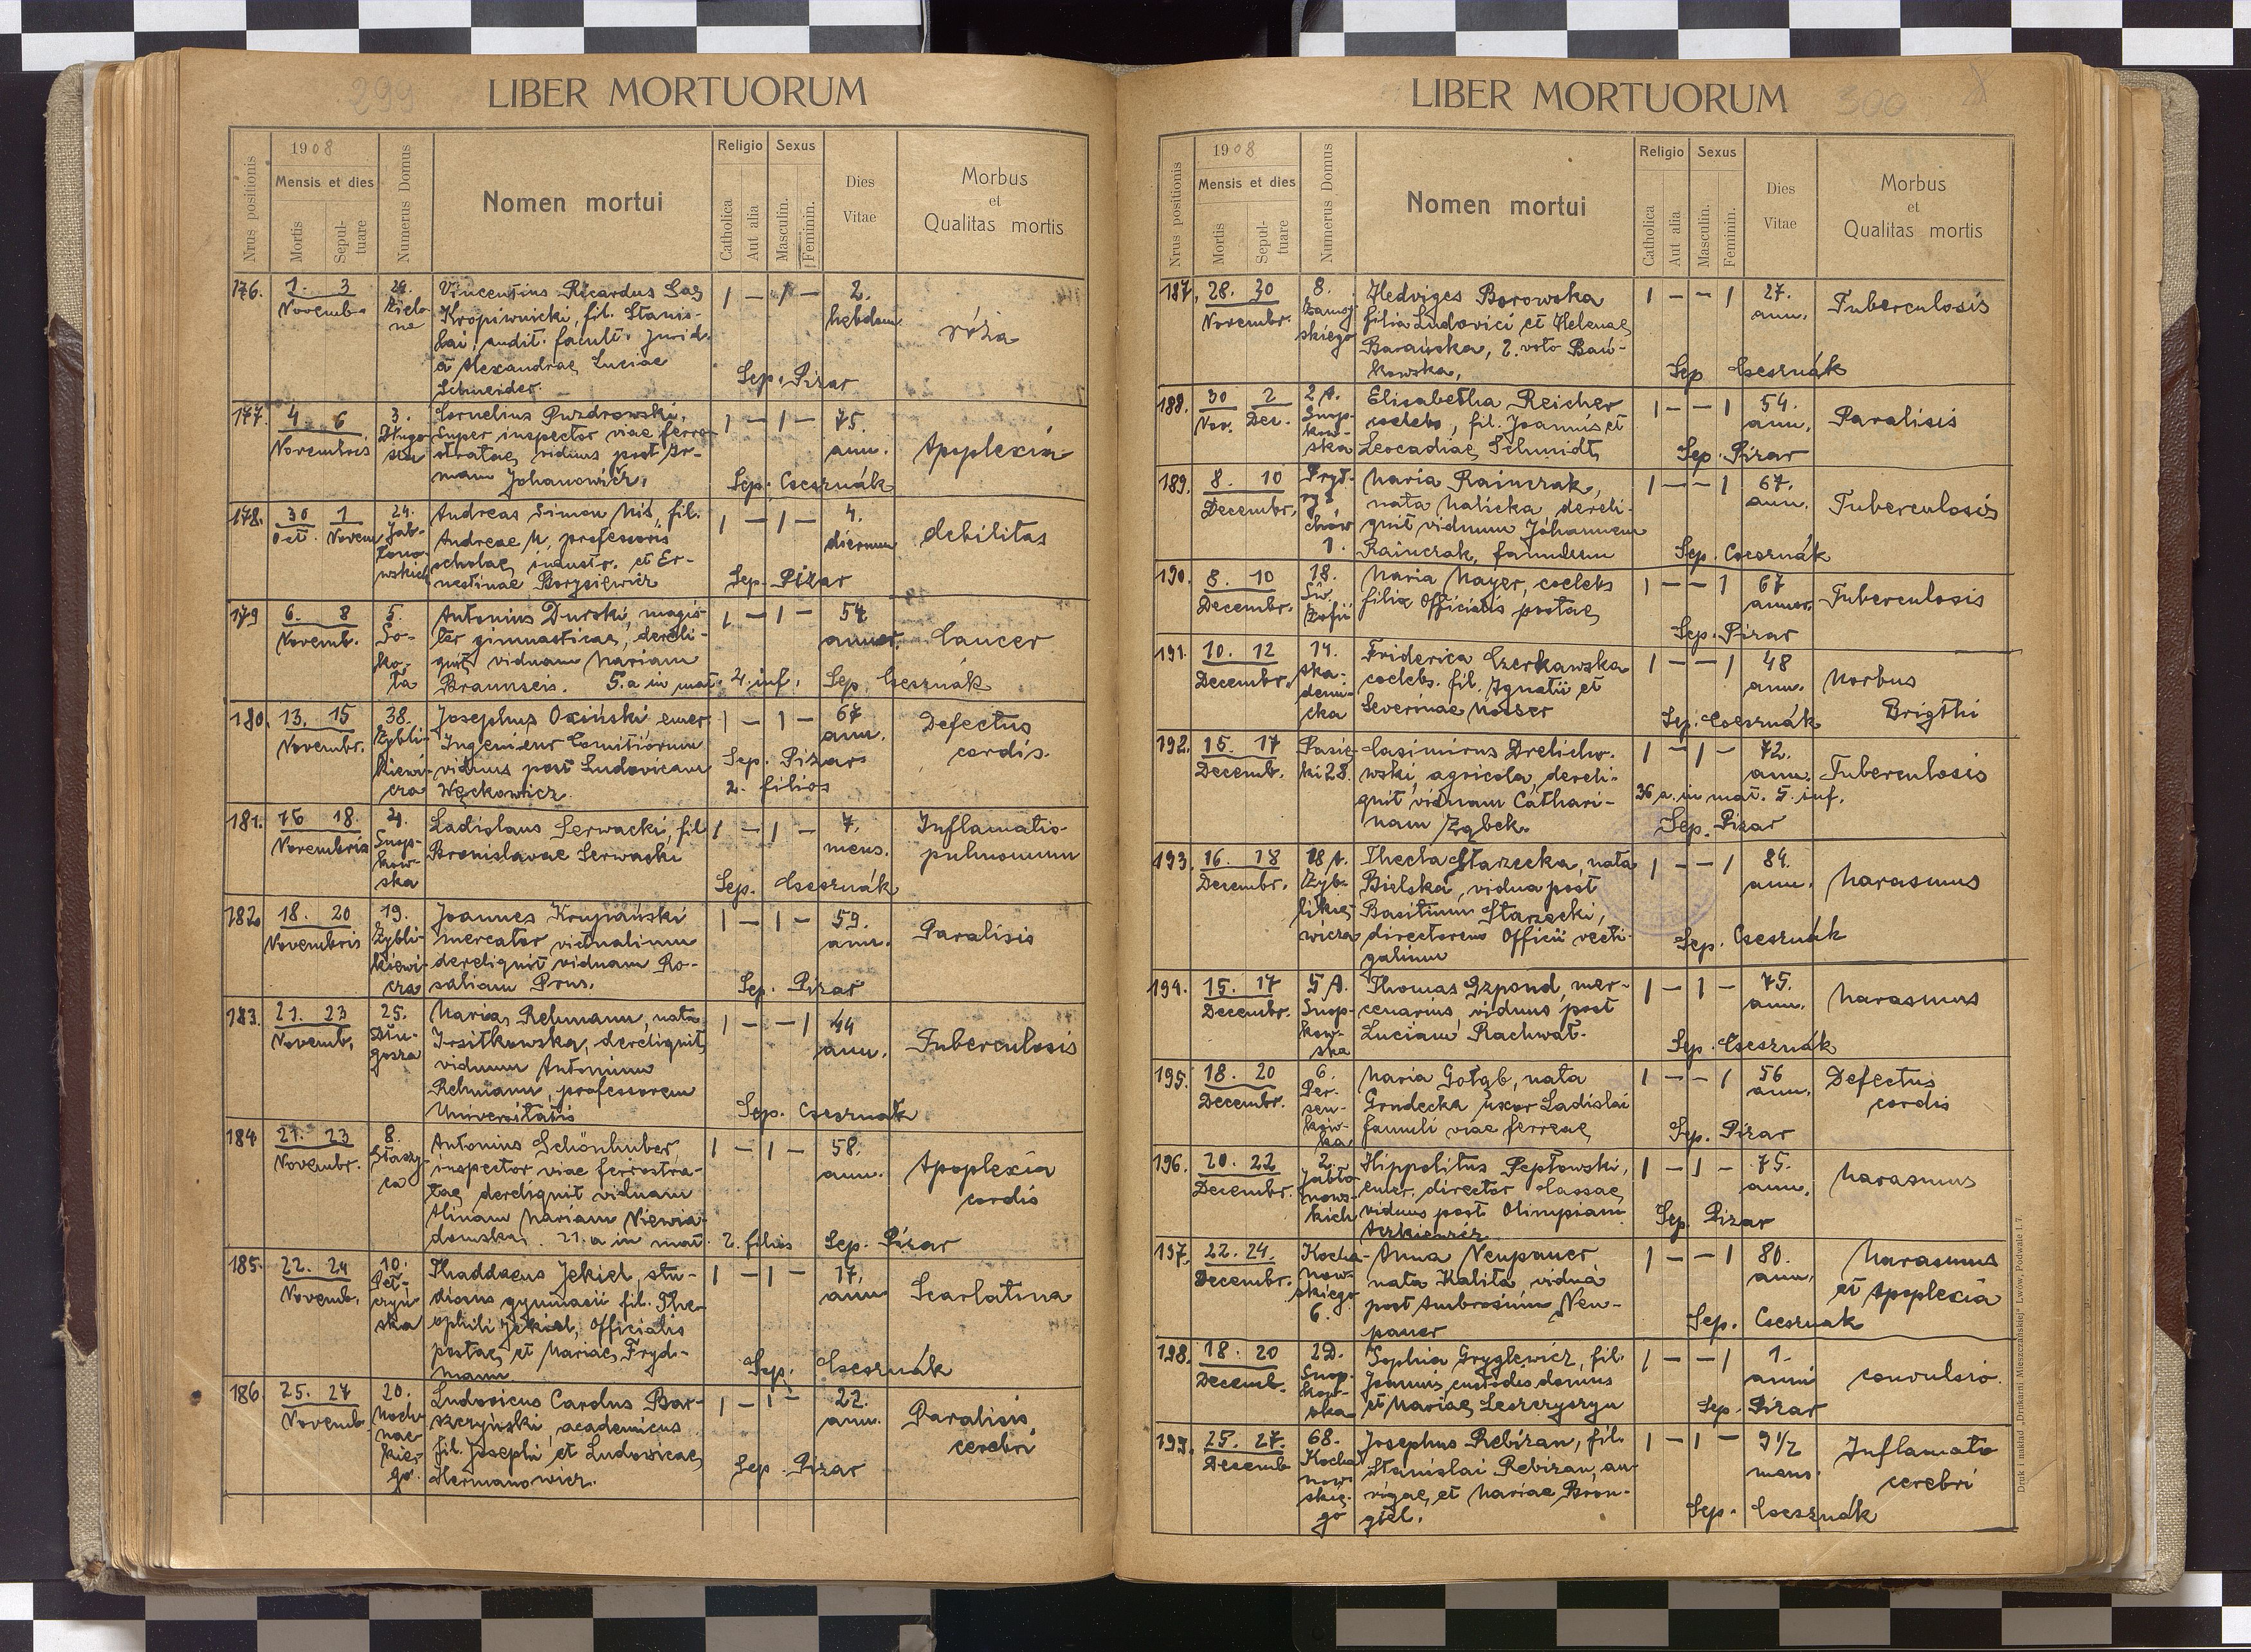 299
LIBER MORTUORUM
Nrus positionis
1908
Mensis et dies
Mortis
Sepul-
tuare
Numerus Domus
Nomen mortui
Religio
Catholica
Aut alia
Sexus
Masculin.
Feminin.
Dies
Vitae
Morbus
et
Qualitas mortis
176. 1. 3 Novemb. 24. Zielo-
na
Vincentius Ricardus Sas
Kropiwnicki, fil. Stanis-
lai, audit. facult. jurid.
a Alexandrae Luciae
Schneider.
1 — 1 —
2.
hebdom.
róża
Sep. Pizar
177. 4 6 Novembris 3. Długo
sza
Cornelius Puzdrowski,
super inspector viae ferro
stratae, viduus post Ir-
mam Johanowicz.
1 — 1 —
75.
ann.
Apoplexia
Sep. Csesznák
178. 30 Oct. 1 Novem 24. Jab-
łono-
wskich
Andreas Simon Niś, fil.
Andreae N, professoris
scholae industr. et Er-
nestinae Borysiewicz
1 — 1 —
4.
dierum
debilitas
Sep. Pizar
179 6. 8 Novemb. 5. So-
ko-
ła
Antonius Durski, magis-
ter gimnasticae, dereli-
quit viduam Mariam
Braunseis. 5. a in mat. 4. inf.
1 — 1 —
54
annor.
Cancer
Sep. Csesznák
180. 13. 15 Novembr. 38. Zybli-
kiewi-
cza
Josephus Osiński emer.
Ingenieur Comitiorum
viduus post Ludovicam
Węckowicz.
1 — 1 —
67
ann.
Defectus
cordis.
Sep. Pizar
2. filios
181. 16 18. Novembris 4. Snop-
kow-
ska
Ladislaus Serwacki, fil
Bronislavae Serwacki
1 — 1 —
7.
mens.
Inflamatio
pulmonum
Sep. Csesznák
182. 18. 20 Novembris 19. Zybli-
kiewi-
cza
Joannes Krupański
mercator victualium
dereliquit viduam Ro-
saliam Prus.
1 — 1 —
59.
ann.
Paralisis
Sep. Pizar
183. 21. 23 Novemb. 25. Dłu-
gosza
Maria Rehmann, nata
Irsitkowska, dereliquit
viduum Antonium
Rehmann, professorem
Universitatis
1 — — 1
44
ann.
Tuberculosis
Sep. Csesznák
184 21. 23 Novembr. 8. Staszy-
ca
Antonius Schönhuber,
inspector viae ferrostra-
tae, dereliquit viduam
Alinam Mariam Niewia-
domska. 21. a in mat. 2. filios
1 — 1 —
58.
ann.
Apoplexia
cordis
Sep. Pizar
185. 22. 24 Novemb. 10. Peł-
czyń-
ska
Thaddaeus Jekiel, stu-
diosus gymnasii fil. The-
ophili Jekiel, Officialis
postae, et Mariae Fryd-
mann
1 — 1 —
17.
ann
Scarlatina
Sep. Csesznák
186 25. 27 Novemb. 20. Moch-
nac-
kie-
go.
Ludovicus Carolus Bar-
szczyński, academicus
fil. Josephi et Ludovicae
Hermanowicz.
1 — 1 —
22.
ann.
Paralisis
cerebri
Sep. Pizar
LIBER MORTUORUM
300
Nrus positionis
1908
Mensis et dies
Mortis
Sepul-
tuare
Numerus Domus
Nomen mortui
Religio
Catholica
Aut alia
Sexus
Masculin.
Feminin.
Dies
Vitae
Morbus
et
Qualitas mortis
187. 28. 30 Novembr. 8. Zamoj
skiego
Hedviges Borowska
filia Ludovici et Helenae
Barańska, 2. voto Bań-
kowska,
1 — — 1
27.
ann.
Tuberculosis
Sep Csesznák
188. 30 Nov. 2 Dec. 2 A. Snop-
kow-
ska
Elisabetha Reicher
coelebs, fil. Joannis et
Leocadiae Schmidt,
1 — — 1
54.
ann.
Paralisis
Sep. Pizar
189. 8. 10 Decembr. Fryd-
ry
chów
1.
Maria Rainczak,
nata Malicka, dereli-
quit viduum Johannem
Rainczak, famulum
1 — — 1
67.
ann.
Tuberculosis
Sep. Csesznák
190. 8. 10 Decembr. 18. Św.
Zofii
Maria Mayer, coelebs
filia Officialis postae,
1 — — 1
67
annor.
Tuberculosis
Sep. Pizar
191. 10. 12 Decembr. 14. ska-
demi-
cka
Friderica Czerkawska
coelebs. fil. Ignatii et
Severinae Mosser
1 — — 1
48
ann.
Morbus
Brigthi
Sep. Csesznák
192. 15. 17 Decemb. Pasie-
ki 28.
Casimirus Drelicho-
wski, agricola, dereli-
quit viduam Cathari-
nam Ząbek.
1 — 1 —
72.
ann.
Tuberculosis
36 a. in mat. 5. inf.
Sep. Pizar
193. 16. 18 Decembr. 18 A. Zyb-
likie-
wicza
Thecla Starzecka, nata
Bielska, vidua post
Basilium Starzecki,
directorem Officii vecti-
galium
1 — — 1
84.
ann.
Marasmus
Sep. Csesznák
194. 15. 17 Decembr. 5 A. Snop-
kow-
ska
Thomas Grzpond, mer-
cenarius, viduus post
Luciam Rachwał.
1 — 1 —
75.
ann.
Marasmus
Sep. Csesznák
195. 18. 20 Decembr. 6. Per-
sen-
kow-
ka
Maria Gołąb, nata
Grudecka uxor Ladislai
famuli viae ferreae,
1 — — 1
56
ann.
Defectus
cordis
Sep. Pizar
196. 20. 22 Decembr. 2. Jabło
nows-
kich
Hippolitus Peptowski,
emer. director Cassae,
viduus post Olimpiam
1 — 1 —
75.
ann.
Marasmus
Sep. Pizar
197. 22. 24. Decembr. Kocha-
now-
skiego
6.
Anna Neupauer
nata Kalita, vidua
post Ambrosium Neu-
pauer
1 — — 1
80.
ann.
Marasmus
et Apoplexia
Sep. Csesznak
198. 18. 20 Decemb. 2D. Snop-
kow-
ska
Sophia Gryglewicz, fil.
Joannis, custodis domus
et Mariae Leszczyszyn
1 — — 1
1.
anni
convulsio.
Sep. Pizar
199. 25. 27. Decemb 68. Kocha
now-
skie-
go
Josephus Rebizan, fil.
Stanislai Rebizan, au-
rigae, et Mariae Bron-
giel.
1 — 1 —
9 1/2
mens.
Inflamatio
cerebri
Sep. Csesznák
Druk i nakład „Drukarni Mieszczańskiej" Lwów, Podwale l. 7.